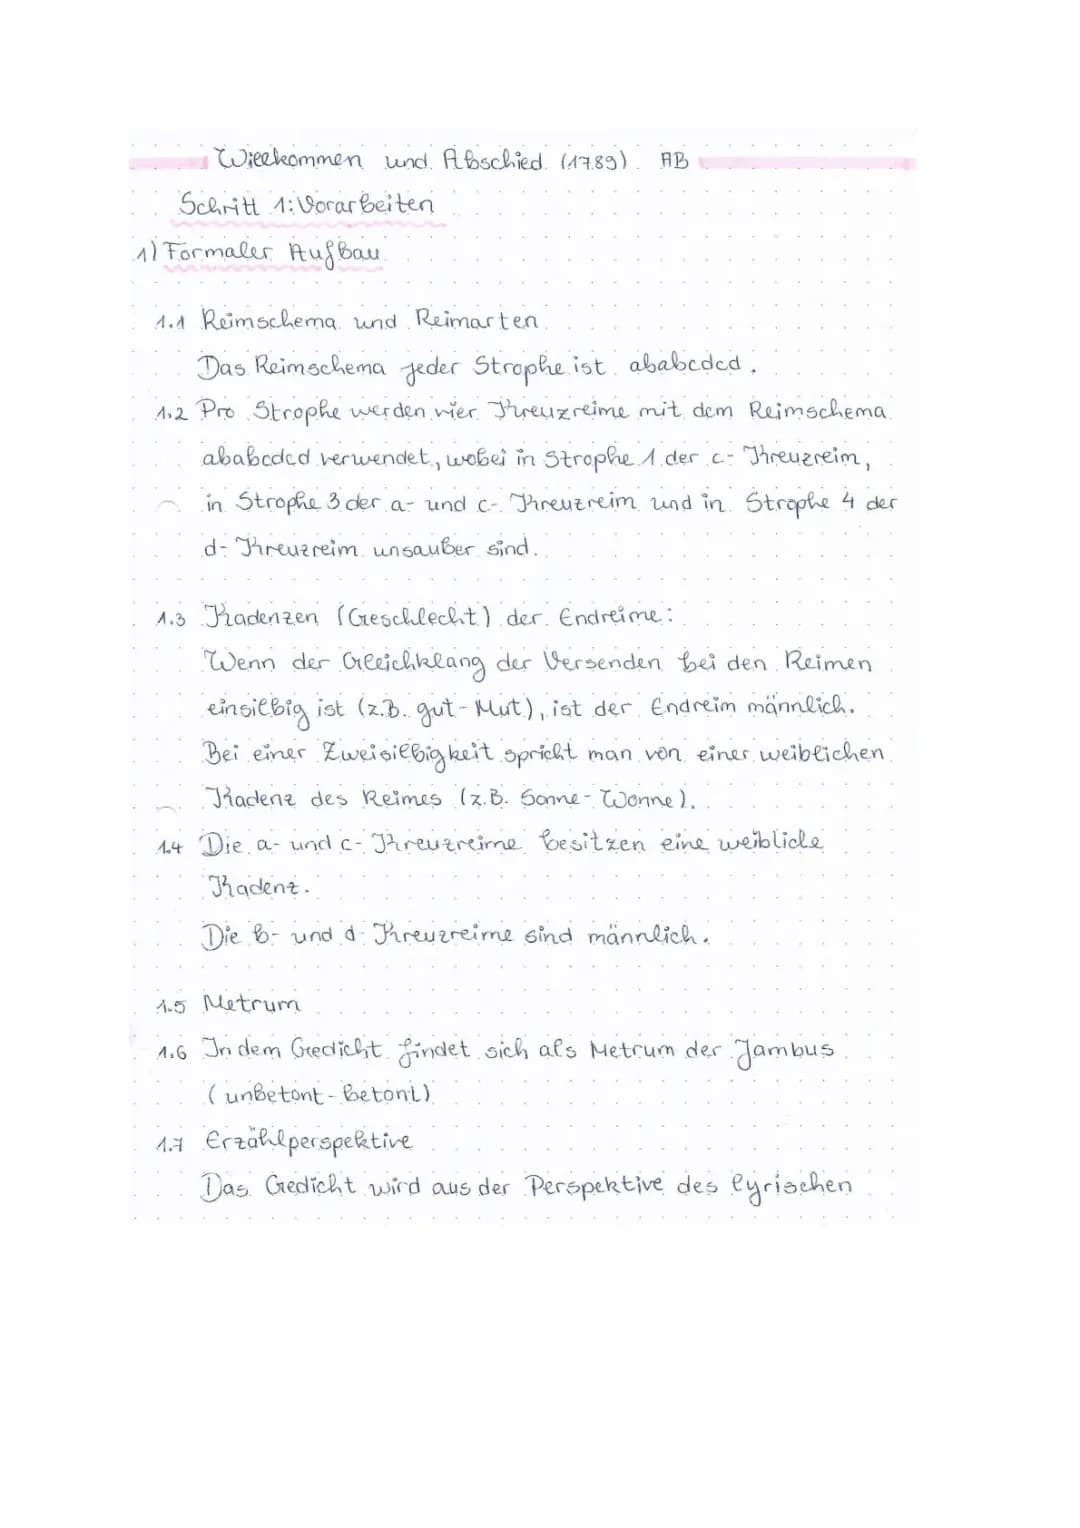 Willkommen und Abschied (1789) AB
Schritt 1: Vorarbeiten
1) Formaler Aufbau
1.1 Reimschema und Reimarten
Das Reimschema jeder Strophe ist ababcdcd.
1.2 Pro Strophe werden vier Kreuzreime mit dem Reimschema
ababcdcd verwendet, wobei in Strophe 1 der c- Kreuzreim,
in Strophe 3 der a- und c- Kreuzreim und in Strophe 4 der
d- Kreuzreim unsauber sind.
1.3 Kadenzen (Geschlecht) der Endreime:
Wenn der Gleichklang der Versenden bei den Reimen
einsilbig ist (z.B. gut - Mut), ist der Endreim männlich.
Bei einer Zweisilbigkeit spricht man von einer weiblichen
Kadenz des Reimes (z.B. Sonne - Wonne).
1.4 Die a- und c- Kreuzreime besitzen eine weibliche
Kadenz.
Die b- und d- Kreuzreime sind männlich.
1.5 Metrum
1.6 In dem Gedicht findet sich als Metrum der Jambus
(unbetont - betont)
1.7 Erzählperspektive
Das Gedicht wird aus der Perspektive des lyrischen